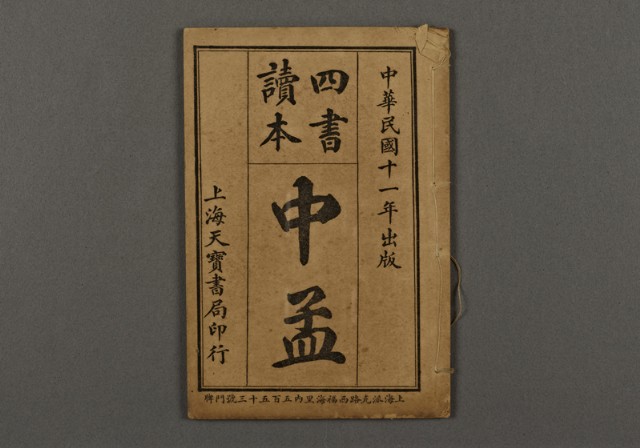 中華民國十一年出版
四書
讀本
中孟
上海天寶書局印行
上海派克路西福海里内五百五十三號門牌